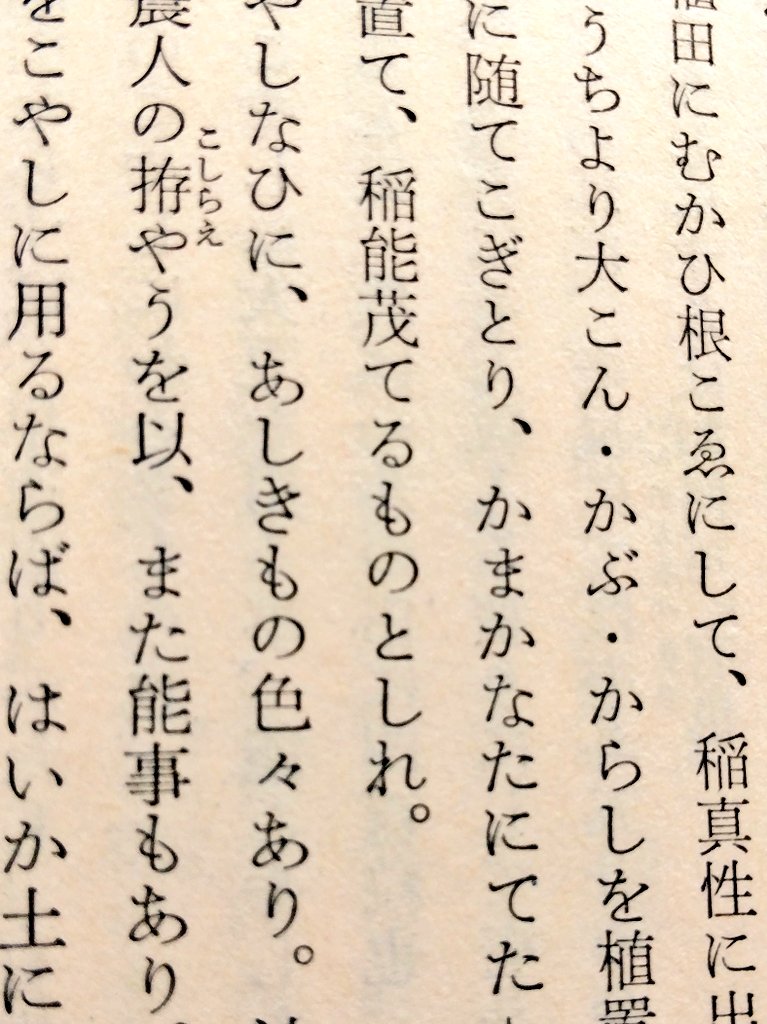 田にむかひ根こゑにして、稲真性に出
うちより大こん・かぶ・からしを植置
に随てこぎとり、かまかなたにてた
直て、稲能茂てるものとしれ。
やしなひに、あしきもの色々あり。
農人の拵やうを以、また能事もあり
こしらえ
をこやしに用るならば、はいか土に